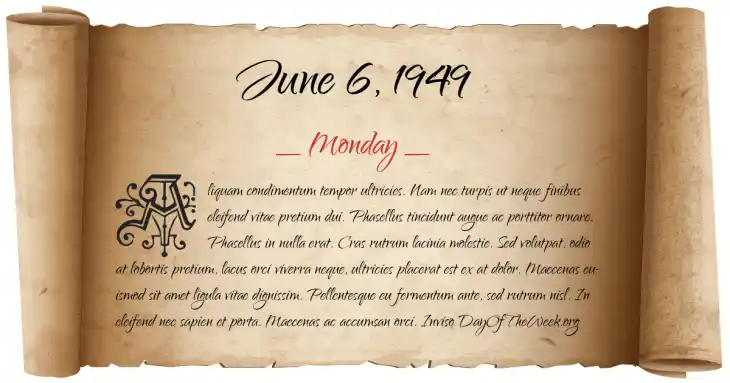 June 6, 1949
_ Monday _
Aliquam condimentum tempor ultricies. Nam nec turpis ut neque finibus
eleifend vitae pretium dui. Phasellus tincidunt augue ac porttitor ornare.
Phasellus in nulla erat. Cras rutrum lacinia molestie. Sed volutpat, odio
at lobortis pretium, lacus orci viverra neque, ultricies placerat est ex at dolor. Maecenas eu-
ismod sit amet ligula vitae dignissim. Pellentesque eu fermentum ante, sed rutrum nisl. In
eleifend nec sapien et porta. Maecenas ac accumsan orci. Inviso DayOfTheWeek.org